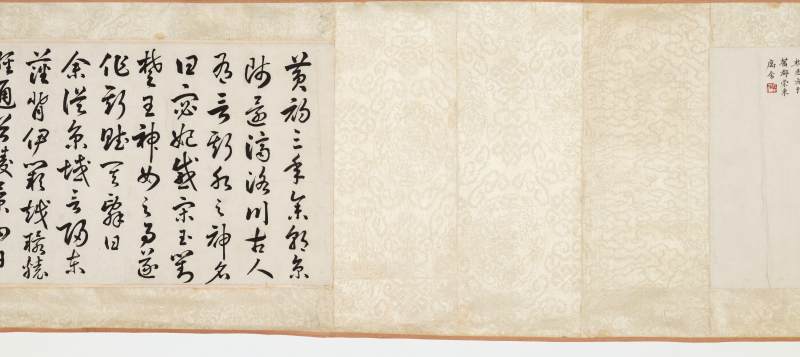 舊都崇東
寓舍
黃初三年余朝京
師還濟洛川古人
有言斯水之神名
曰宓妃感宋玉對
楚王神女之事遂
作斯賦其辭曰
余從京域言歸東
藩背伊闕越轘轅
經通谷陵景山日